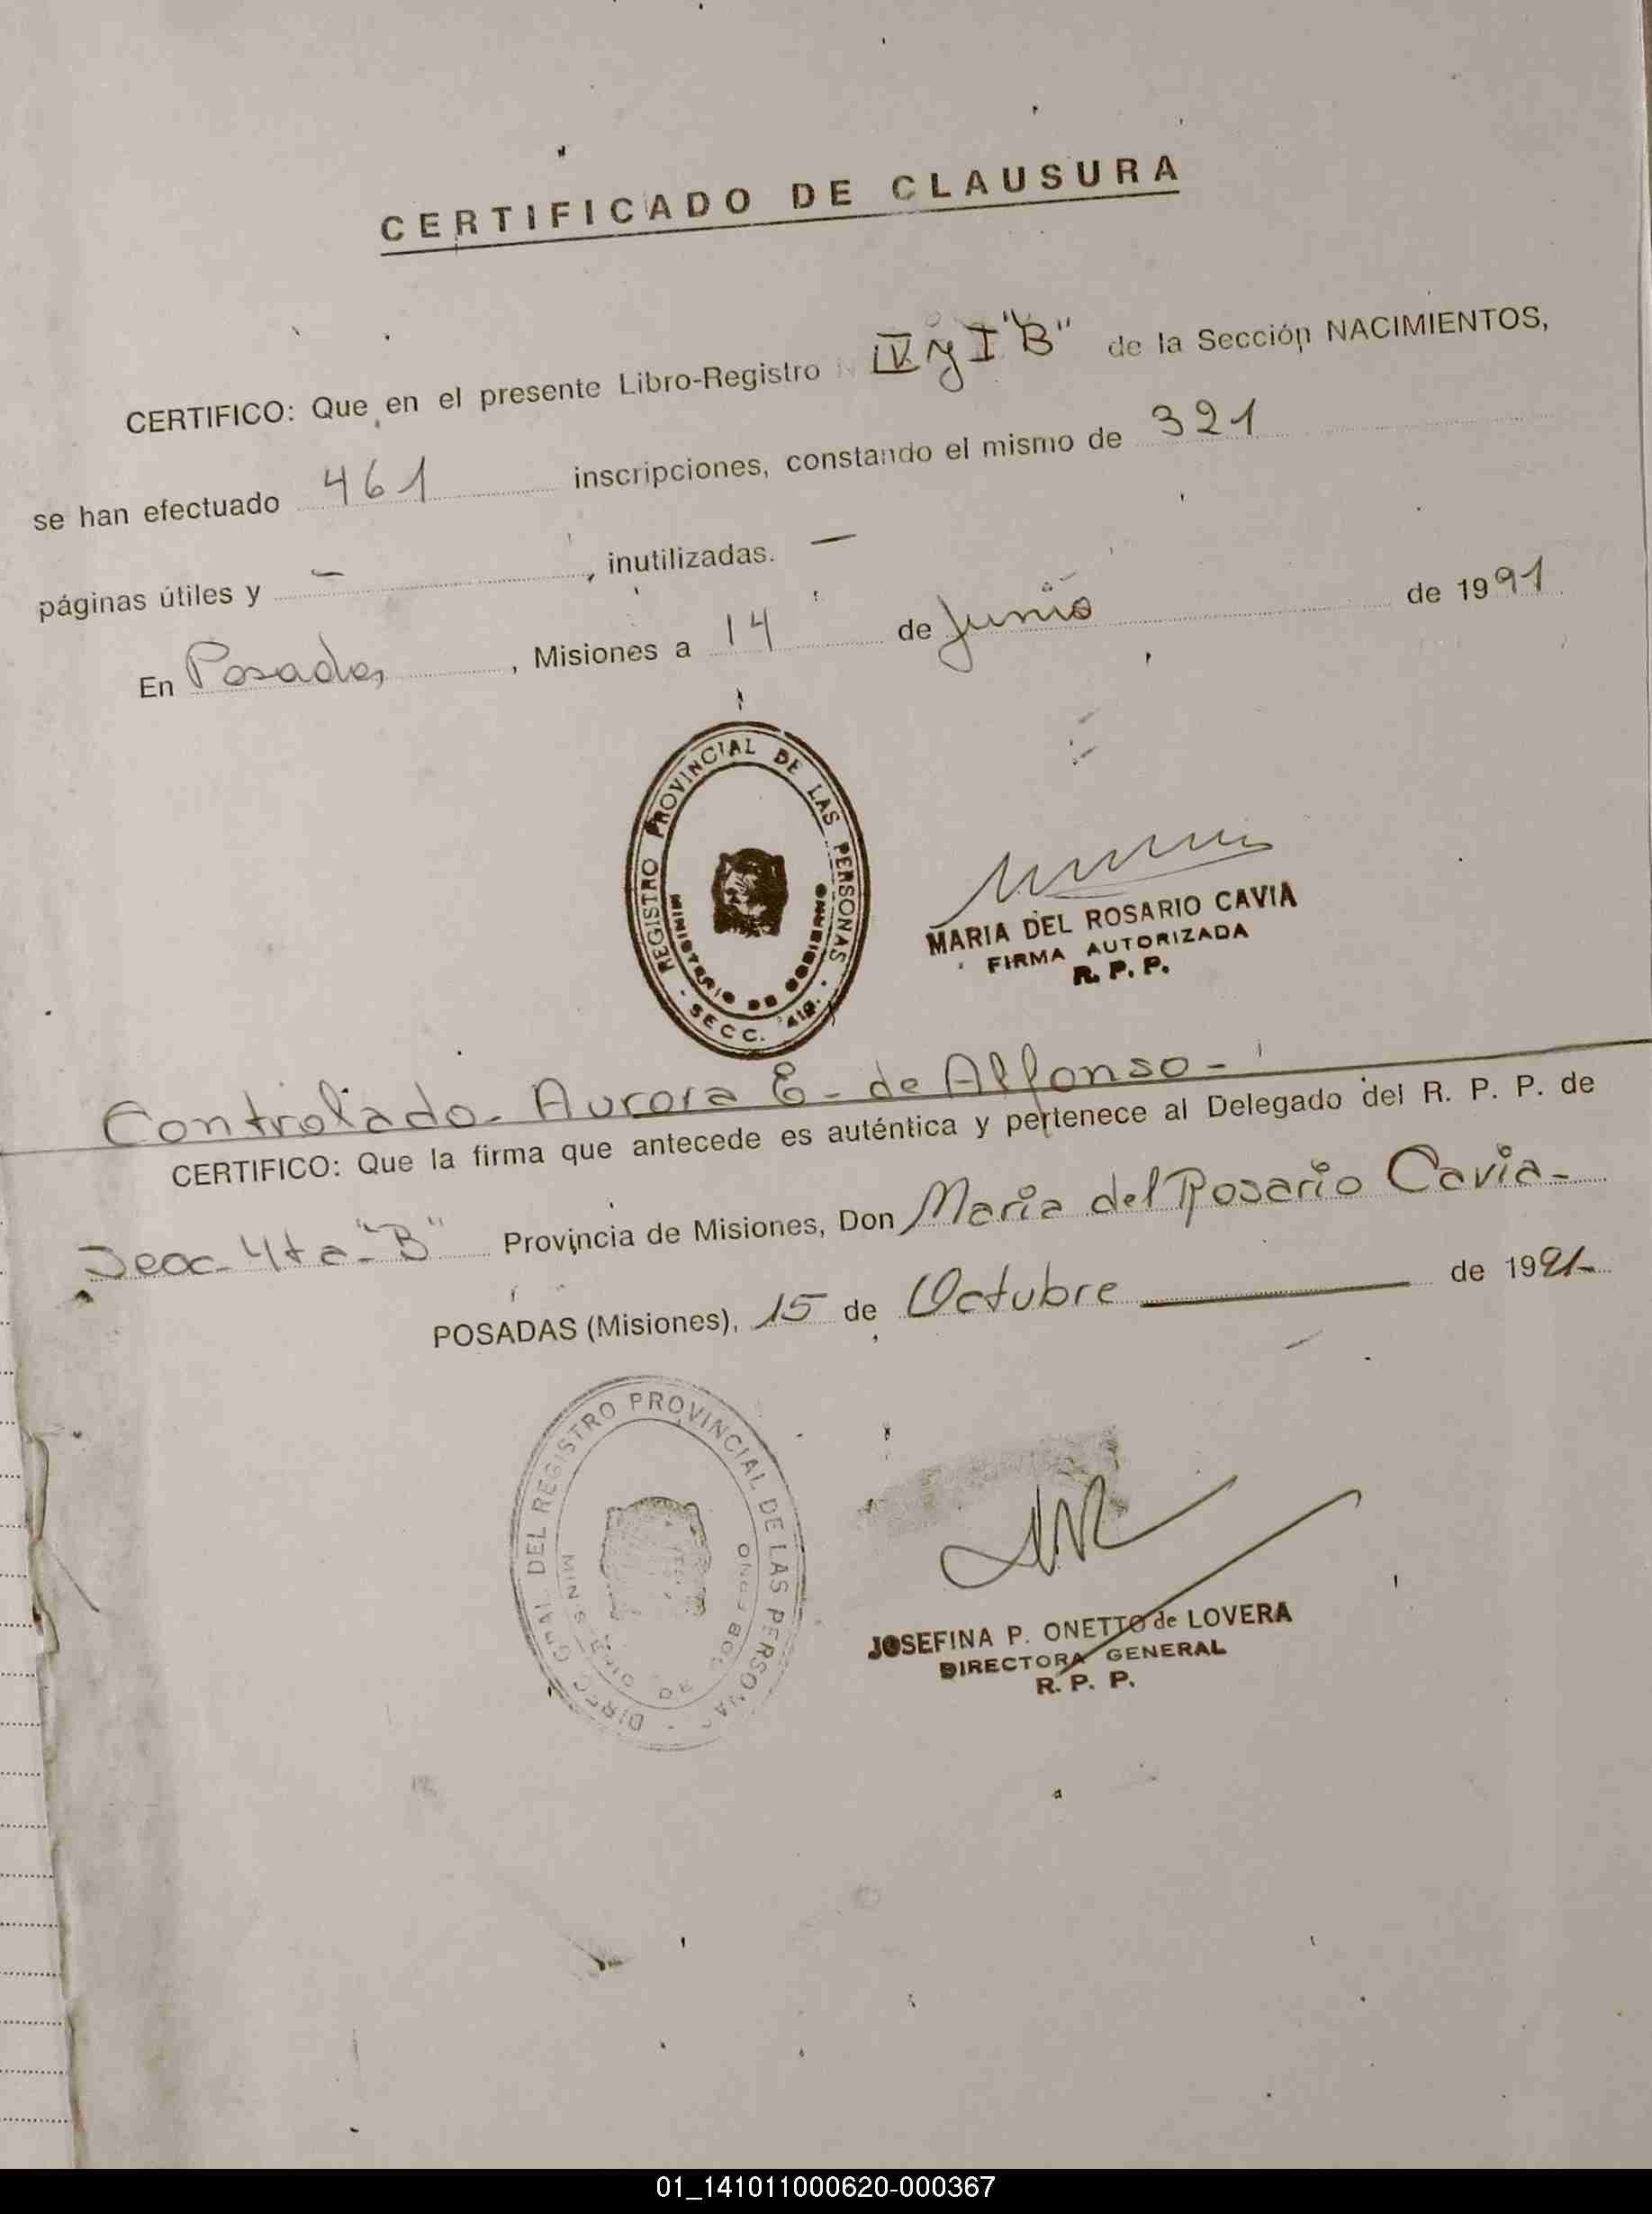 CERTIFICADO DE CLAUSURA
CERTIFICO: Que en el presente Libro-Registro IV y I "B" de la Sección NACIMIENTOS,
se han efectuado 461 inscripciones, constando el mismo de 321
páginas útiles y - , inutilizadas. —
En Posadas, Misiones a 14 de Junio de 1991
REGISTRO PROVINCIAL DE LAS PERSONAS
MINISTERIO DE GOBIERNO
- SECC. 4ta. -
MARIA DEL ROSARIO CAVIA
FIRMA AUTORIZADA
R. P. P.
Controlado - Aurora E - de Alfonso -
CERTIFICO: Que la firma que antecede es auténtica y pertenece al Delegado del R. P. P. de
Secc - 4ta - "B" Provincia de Misiones, Don Maria del Rosario Cavia -
POSADAS (Misiones), 15 de Octubre de 1991-
DIREC. GRAL. DEL REGISTRO PROVINCIAL DE LAS PERSONAS
MINISTERIO DE GOBIERNO
JOSEFINA P. ONETTO de LOVERA
DIRECTORA GENERAL
R. P. P.
01_141011000620-000367